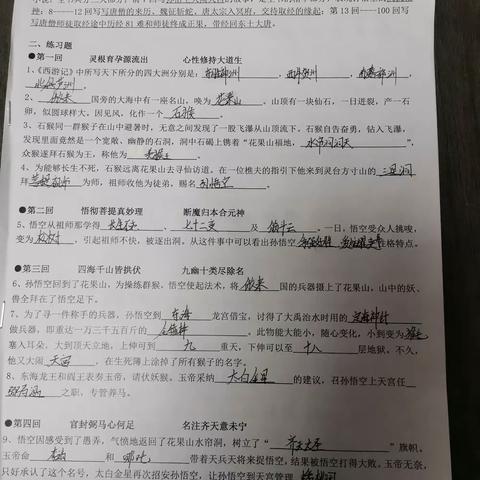 神；8-----12回写写唐僧的来历，魏征斩蛟、唐太宗入冥府，交待取经的缘起；第13回----100回写
写唐僧师徒取经途中历经81难和师徒终成正果，带经回东土大唐。
二、练习题
●第一回 灵根育孕源流出 心性修持大道生
1、《西游记》中所写天下所分的四大洲分别是：东胜神洲、西牛贺洲、南赡部洲、
北俱芦洲
2、傲来国旁的大海中有一座名山，唤为花果山，山顶有一块仙石，一日迸裂，产一石
卵，似圆球样大，因见风，化作一个石猴
3、石猴同一群猴子在山中避暑时，无意之间发现了一股飞瀑从山顶流下，石猴自告奋勇，钻入飞瀑，
发现里面竟然是一个宽敞、幽静的石洞，洞中石碣上镌着“花果山福地，水帘洞洞天”，
众猴遂拜石猴为王，称他为美猴王
4、为能够长生不死，石猴远离花果山去寻仙访道，在一位樵夫的指引下他来到灵台方寸山的三星洞
拜菩提祖师为师，祖师收他为徒弟，赐名孙悟空
●第二回 悟彻菩提真妙理 断魔归本合元神
5、悟空从祖师那学得长生不老、七十二变及筋斗云，一日，悟空受众人挑唆，
变为松树，引起祖师不快，被逐出洞，从这件事中可以看出孙悟空 性格特点。
●第三回 四海千山皆拱伏 九幽十类尽除名
6、孙悟空回到了花果山，为操练群猴，悟空使起法术，将傲来国的兵器摄上了花果山，山中的妖
兽全拜在了悟空足下。
7、为了寻一件称手的兵器，孙悟空到东海龙宫借宝，讨得了大禹治水时用的定海神针
做兵器，即重达一万三千五百斤的金箍棒，此物能大能小，随心变化，小到变为
塞人耳朵，大到顶天立地，上伸可到九重天，下伸可以至十八层地狱。不久，
他又大闹天宫，在生死簿上涂掉了所有猴子的名字。
8、东海龙王和阎王表奏玉帝，请伏妖猴，玉帝采纳太白金星的建议，召孙悟空上天宫任
弼马温之职，专管养马。
●第四回 官封弼马心何足 名注齐天意未宁
9、悟空因感受到了愚弄，气愤地返回了花果山水帘洞，树立了“齐天大圣”旗帜，
玉帝命李靖和哪吒带着天兵天将来捉悟空，结果被悟空打得大败，玉帝无奈，
只好承认了这个名号，太白金星再次招安孙悟空，让孙悟空到天宫管理蟠桃园